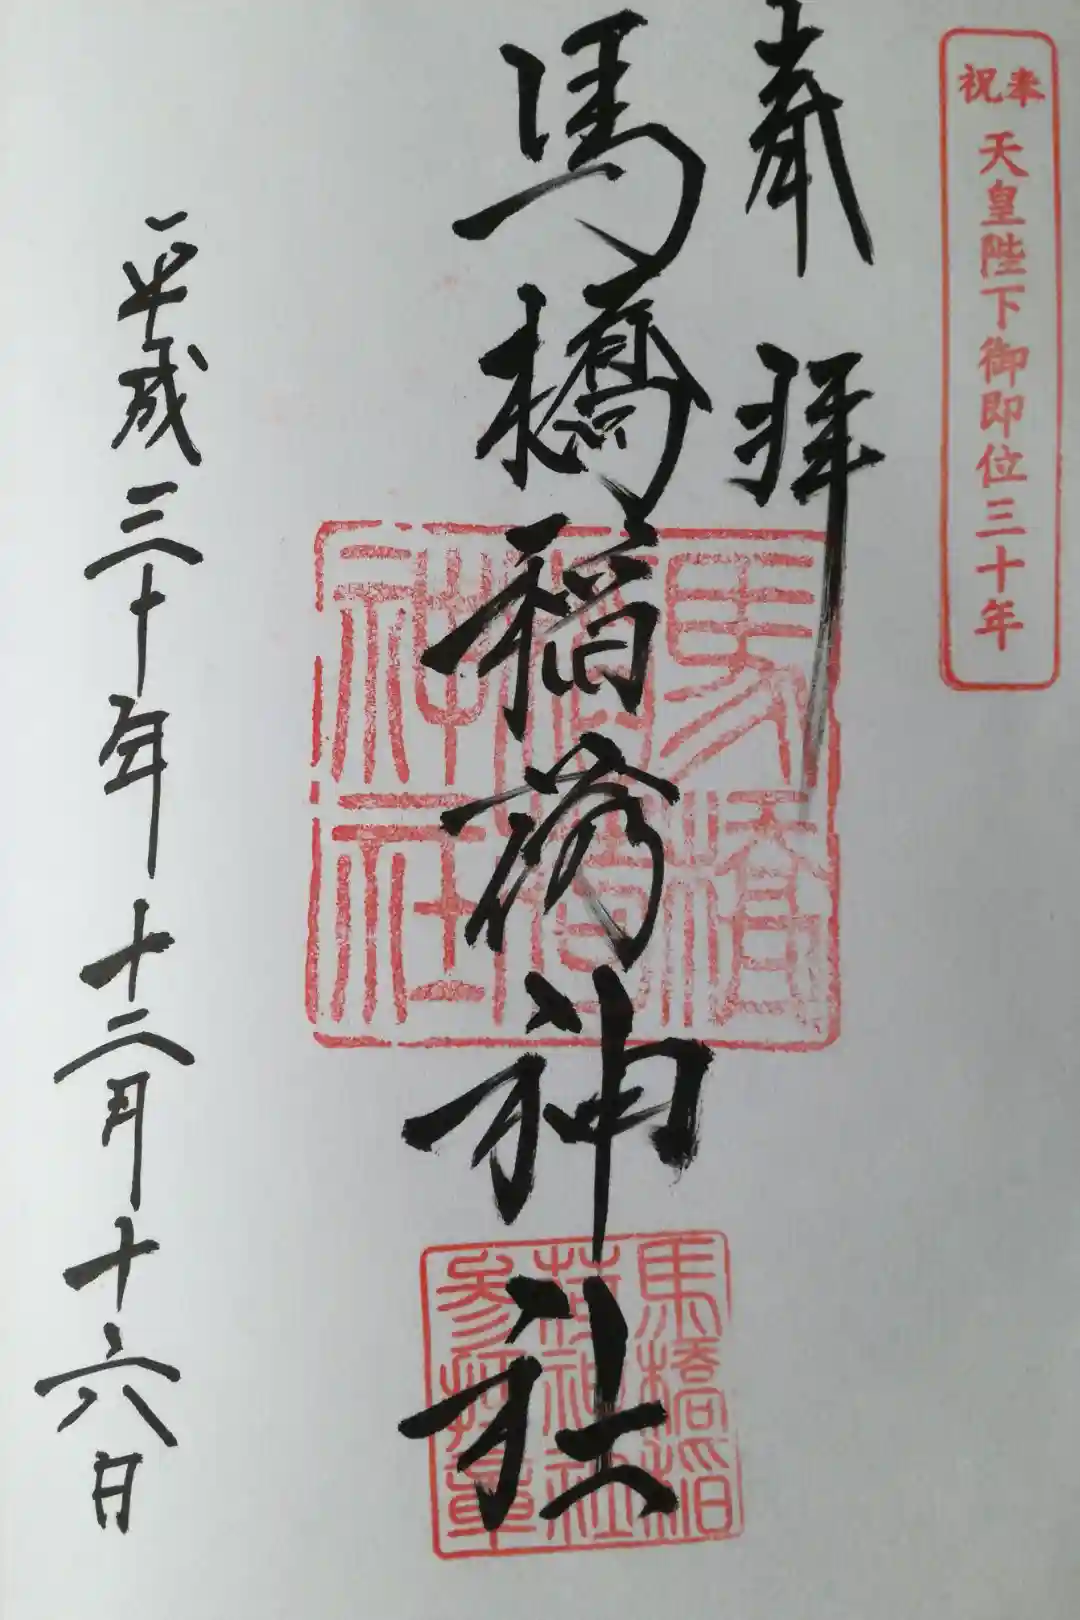 奉祝
天皇陛下御即位三十年
奉拝
馬橋稲荷神社
馬橋稲荷神社
馬橋稲荷神社参拝章
平成三十年十二月十六日